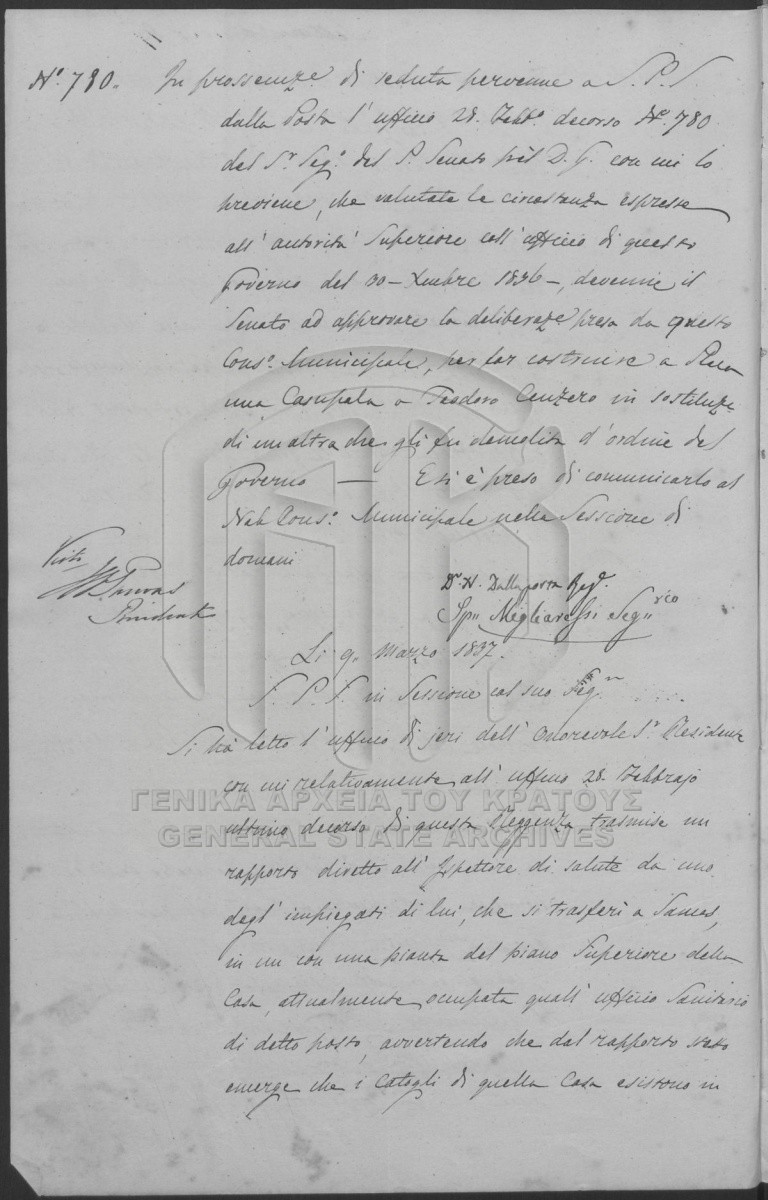 Nº. 780. In prossecuzne di seduta pervenne a S. P. S.
dalla Posta l' ufficio 28. Febbº. decorso Nº. 780
del Sr. Segº. del P. Senato pel D. G. con cui lo
previene, che valutate le circostanze espresse
all' autorità Superiore coll' ufficio di questo
Governo del 30 – Xmbre 1836 –, devenne il
Senato ad approvare la deliberaze presa da questo
Consº. Municipale, per far costruire a
una Casupola a Teodoro in sostituze
di un altra che gli fu demolita d' ordine del
Governo — E si è preso di comunicarlo al
Consº. Municipale nella Sessione di
domani
Visto
Dr. N. Dallaporta Regte.
Spn. Migliaressi Segrio
Li 9. Marzo 1837.
S. P. S. in Sessione col suo Segrio
Si hà letto l' ufficio di jeri dell' Onorevole Sr. Residente
con cui relativamente all' ufficio 28. Febbrajo
ultimo decorso di questa Reggenza trasmise un
rapporto diretto all' Ispettore di salute da uno
degl' impiegati di lui, che si trasferì a Samos,
in un con una pianta del piano Superiore della
Casa, attualmente ocupata quall' ufficio Sanitario
di detto posto, avvertendo che dal rapporto stesso
emerge che i Catogli di quella Casa esistono in
ΓΕΝΙΚΑ ΑΡΧΕΙΑ ΤΟΥ ΚΡΑΤΟΥΣ
GENERAL STATE ARCHIVES